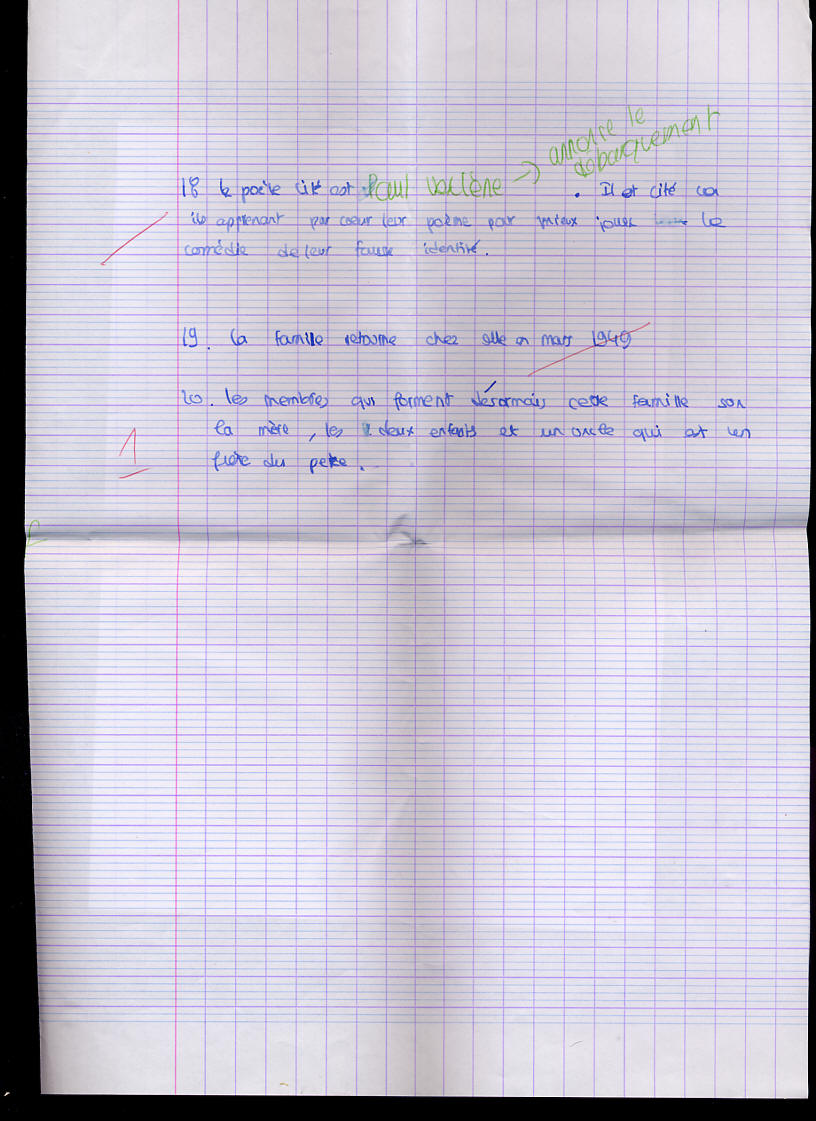 annonce le
débarquement
18 le poète cité est Paul Verlène → . Il est cité car
ils apprenant par coeur leur poème pour mieux jouer le
comédie de leur fausse identité.
19. La famille retourne chez elle en mars 1949
20. les membres qui forment désormais cette famille son
la mère, les deux enfants et un oncle qui est un
frère du père.
1